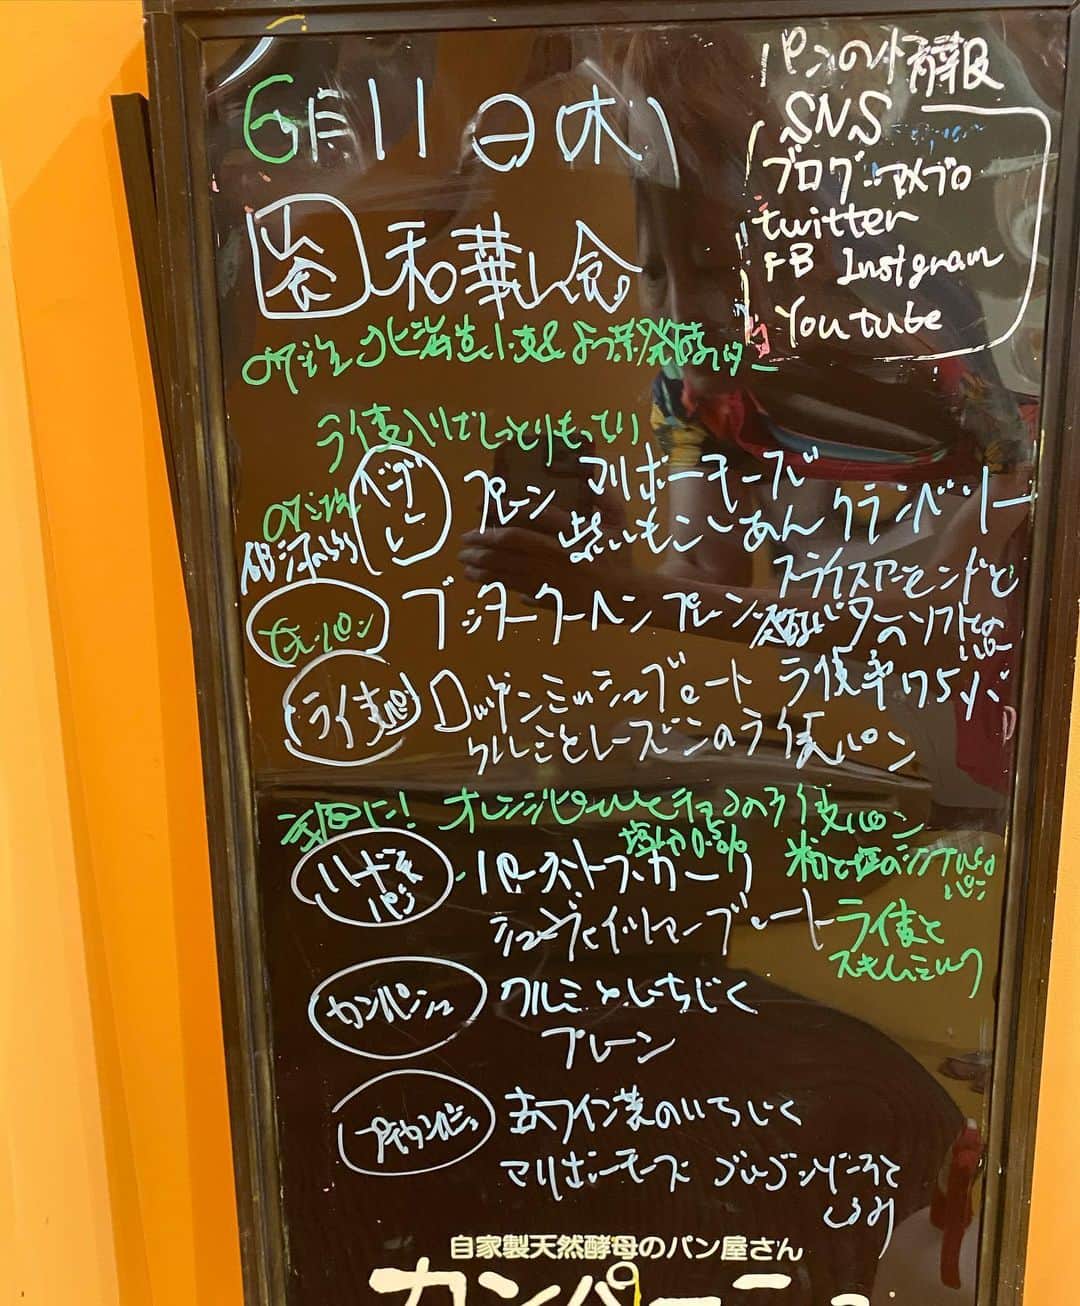 6月11日(木)
パンの情報
SNS
ブログ アメブロ
twitter
FB Instgram
Youtube
和華し食
北海道小麦&よつ葉発酵バター
ライ麦入りでしっとりもっちり
ベーグル
プレーン マリボーチーズ
紫いもこしあん クランベリー
ブッタークーヘン プレーン
スライスアーモンドと
発酵バターのソフトな
ライ麦パン
ロッゲンミッシュブロート ライ麦率75%
クルミとレーズンのライ麦パン
オレンジピールとチョコのライ麦パン
ハード系
パン
塩分0.8%
パーネトスカーノ
粉と塩のシンプルな
パン
シュヴァイツァーブロート
ライ麦と
スキムミルク
カンパーニュ
クルミといちじく
プレーン
プチカンパーニュ
赤ワイン煮のいちじく
マリボーチーズ
自家製天然酵母のパン屋さん
カンパーニュ